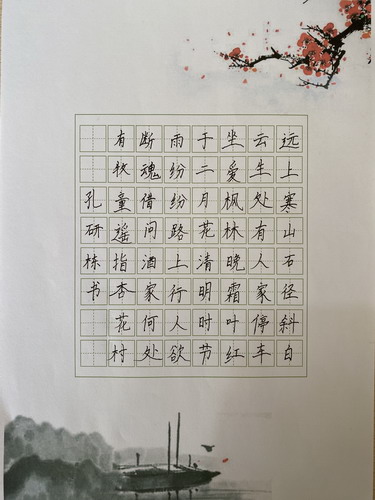 远上寒山石径斜白
云生处有人家停车
坐爱枫林晚霜叶红
于二月花清明时节
雨纷纷路上行人欲
断魂借问酒家何处
有牧童遥指杏花村
孔研栋书